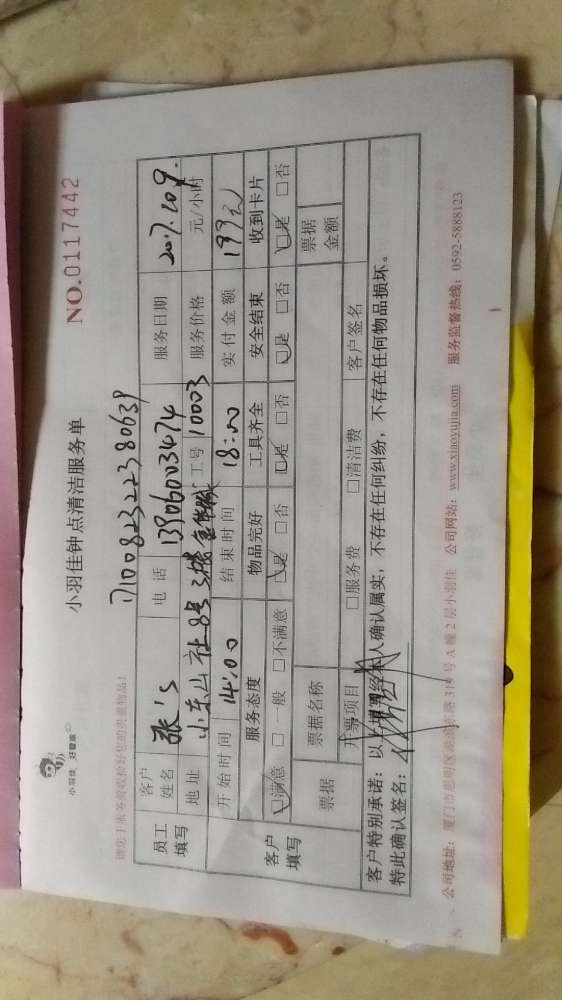 小羽佳 好管家
小羽佳钟点清洁服务单
NO.0117442
17100823223 80639
请您于服务前收捡好您的贵重物品!
员工填写
客户姓名 张's 电话 13906003474 服务日期 2017.10.9.
地址 小东山社 8号 3楼 工号 10003 服务价格 元/小时
开始时间 14:00 结束时间 18:00 实付金额 199元
客户填写
服务态度 物品完好 工具齐全 安全结束 收到卡片
☑满意 □一般 □不满意 ☑是 □否 ☑是 □否 ☑是 □否 ☑是 □否
票据 票据名称 票据金额
开票项目 □服务费 □清洁费 客户签名
客户特别承诺:以上填写经本人确认属实,不存在任何纠纷,不存在任何物品损坏。
特此确认签名:
公司地址:厦门市思明区湖滨南路 号A幢2层小羽佳 公司网站:www.xiaoyujia.com 服务监督热线:0592-5888123